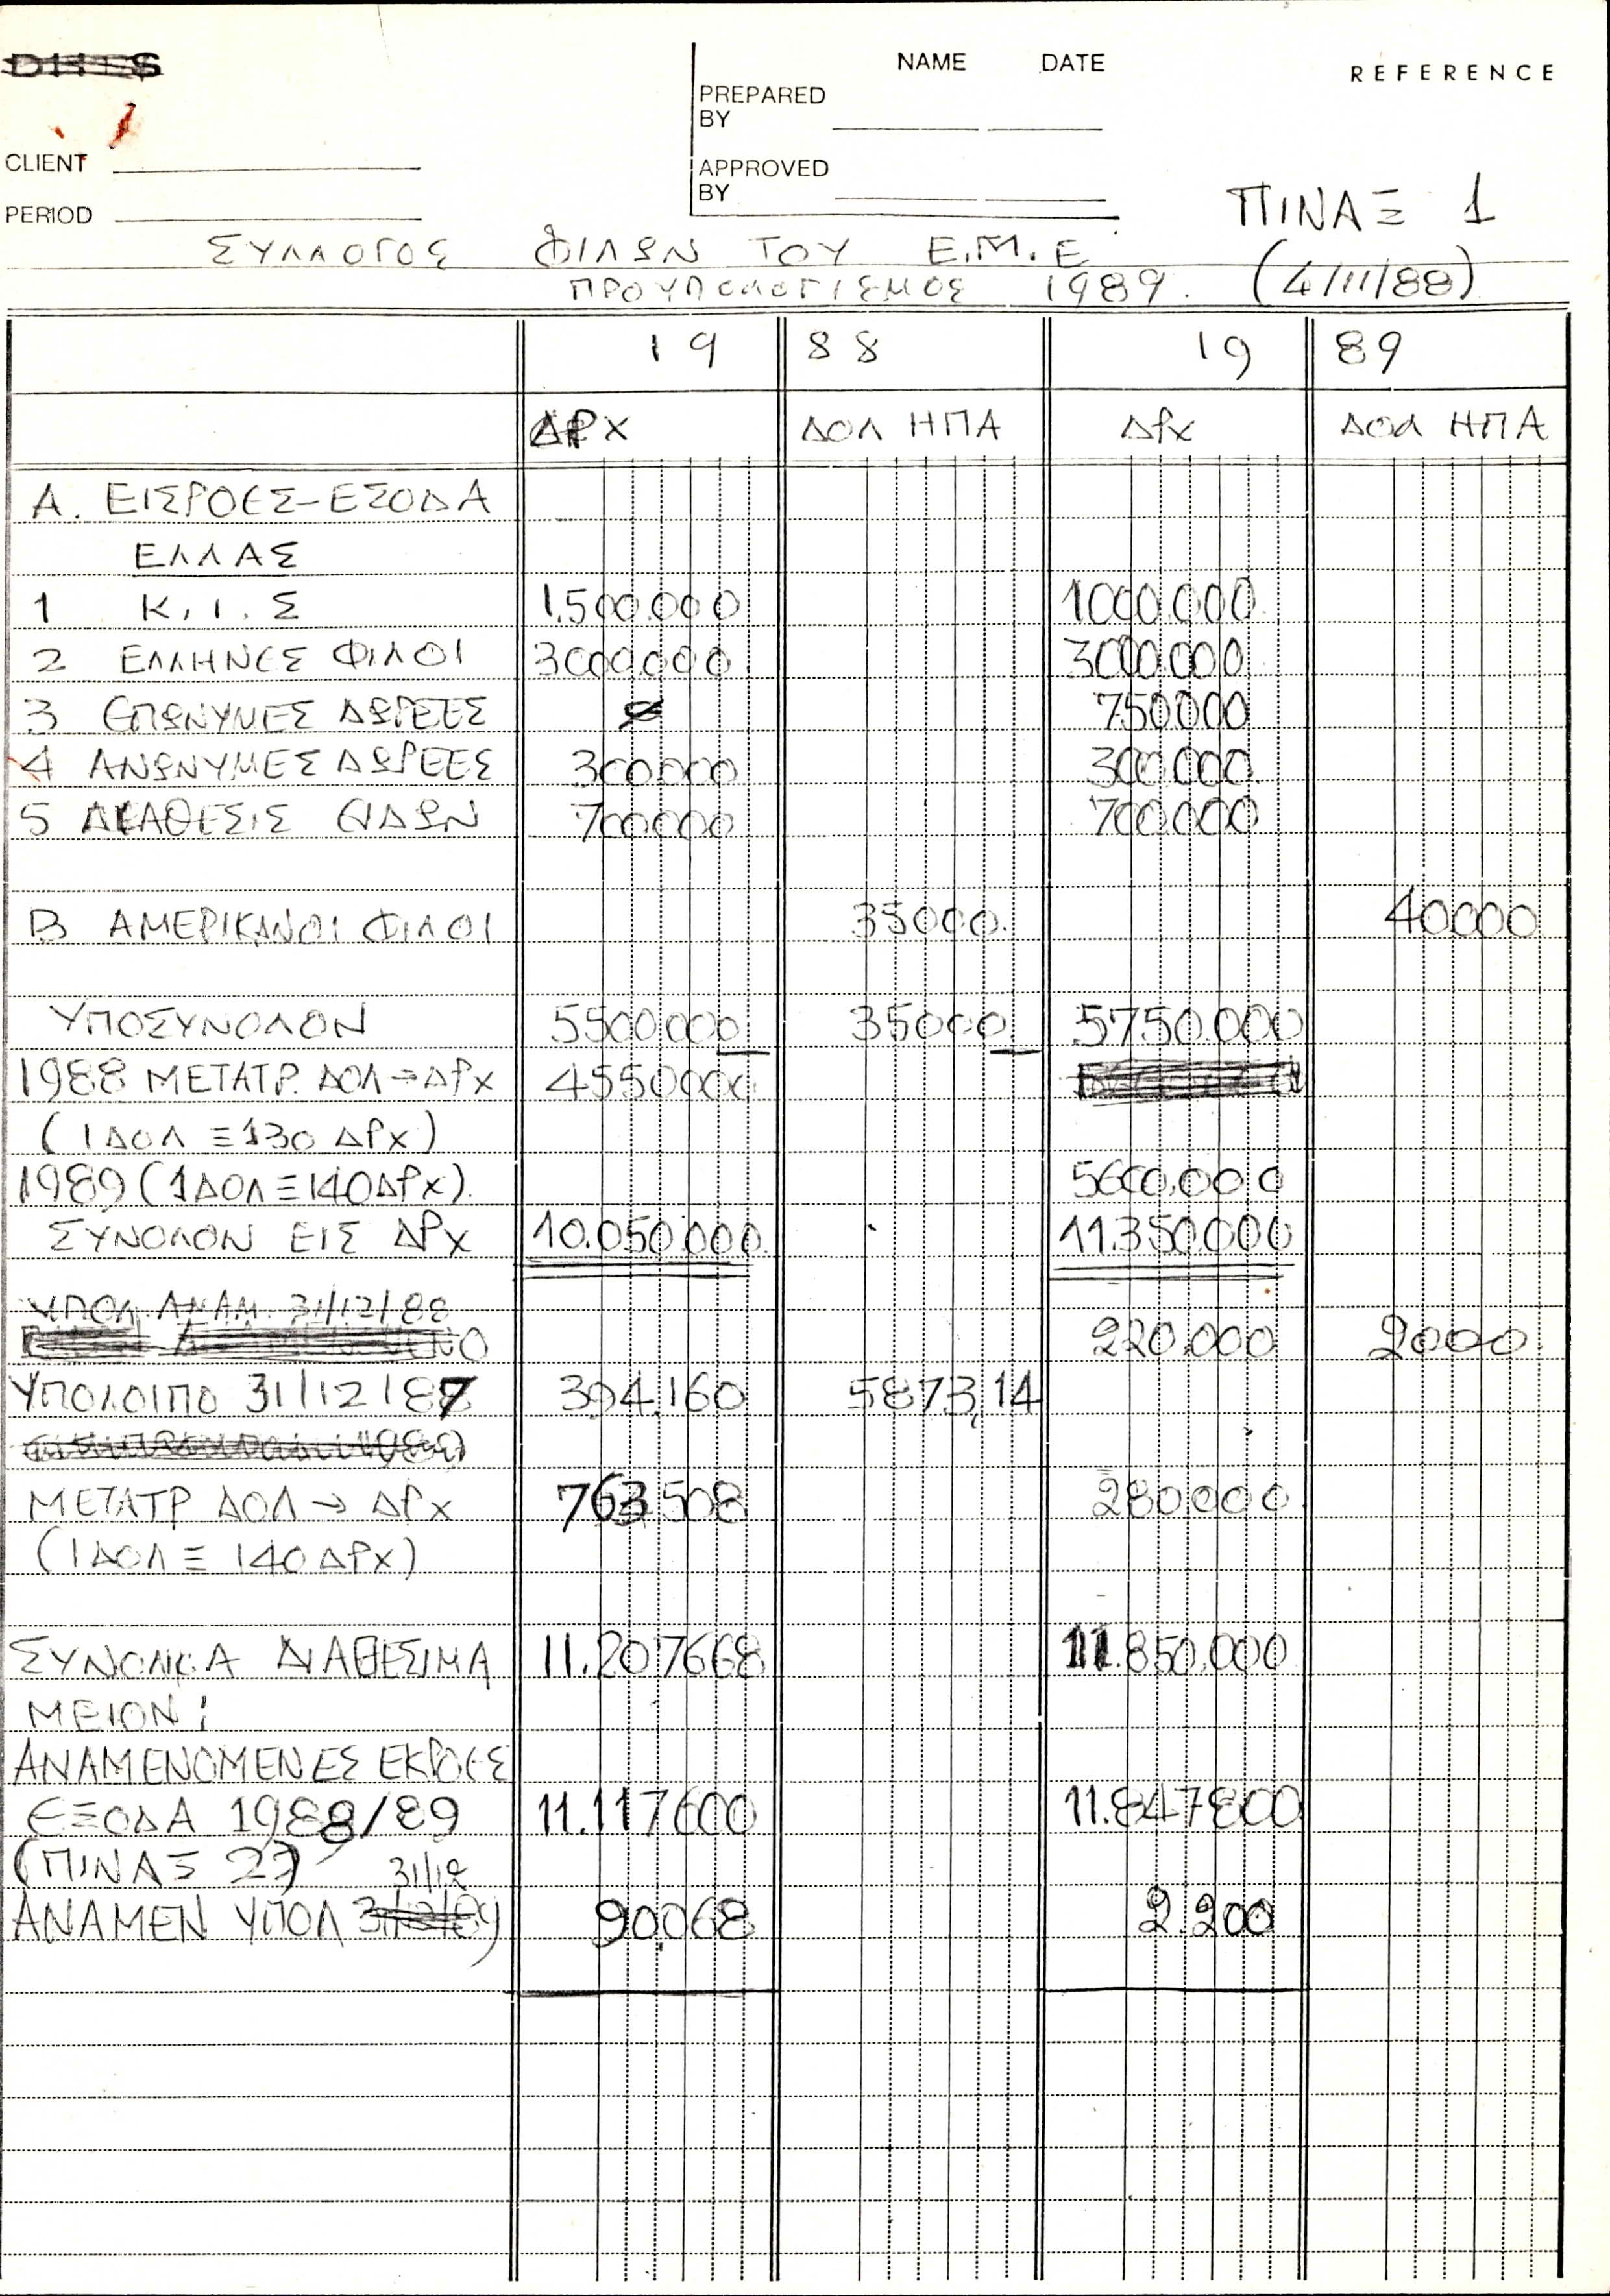 NAME DATE
REFERENCE
PREPARED
BY
CLIENT
APPROVED
BY
PERIOD
ΠΙΝΑΞ 1
ΣΥΛΛΟΓΟΣ ΦΙΛΩΝ ΤΟΥ Ε.Μ.Ε
ΠΡΟΥΠΟΛΟΓΙΣΜΟΣ 1989. (4/11/88)
19 88 19 89
ΔΡΧ ΔΟΛ ΗΠΑ ΔΡΧ ΔΟΛ ΗΠΑ
Α. ΕΙΣΡΟΕΣ-ΕΣΟΔΑ
ΕΛΛΑΣ
1 Κ.Ι.Σ 1.500.000 1000.000
2 ΕΛΛΗΝΕΣ ΦΙΛΟΙ 3000.000 3000.000
3 ΕΠΩΝΥΜΕΣ ΔΩΡΕΕΣ Ø 750000
4 ΑΝΩΝΥΜΕΣ ΔΩΡΕΕΣ 300.000 300.000
5 ΔΙΑΘΕΣΙΣ ΕΙΔΩΝ 700000 700.000
Β ΑΜΕΡΙΚΑΝΟΙ ΦΙΛΟΙ 35000. 40000
ΥΠΟΣΥΝΟΛΟΝ 5500.000 35000 5750.000
1988 ΜΕΤΑΤΡ. ΔΟΛ→ΔΡΧ 4550000
(1 ΔΟΛ ≡ 130 ΔΡΧ)
1989 (1 ΔΟΛ ≡ 140 ΔΡΧ). 5600.000
ΣΥΝΟΛΟΝ ΕΙΣ ΔΡΧ 10.050.000. 11.350.000
ΥΠΟΛ. ΑΝΑΜ. 31/12/88
220.000 2000
ΥΠΟΛΟΙΠΟ 31/12/87 394.160 5873,14
ΜΕΤΑΤΡ ΔΟΛ → ΔΡΧ 763.508 280000
(1 ΔΟΛ ≡ 140 ΔΡΧ)
ΣΥΝΟΛΙΚΑ ΔΙΑΘΕΣΙΜΑ 11.207668 11.850.000
ΜΕΙΟΝ:
ΑΝΑΜΕΝΟΜΕΝΕΣ ΕΚΡΟΕΣ
ΕΞΟΔΑ 1988/89 11.117600 11.847800
(ΠΙΝΑΞ 2) 31/12
ΑΝΑΜΕΝ ΥΠΟΛ 90.068 2.200